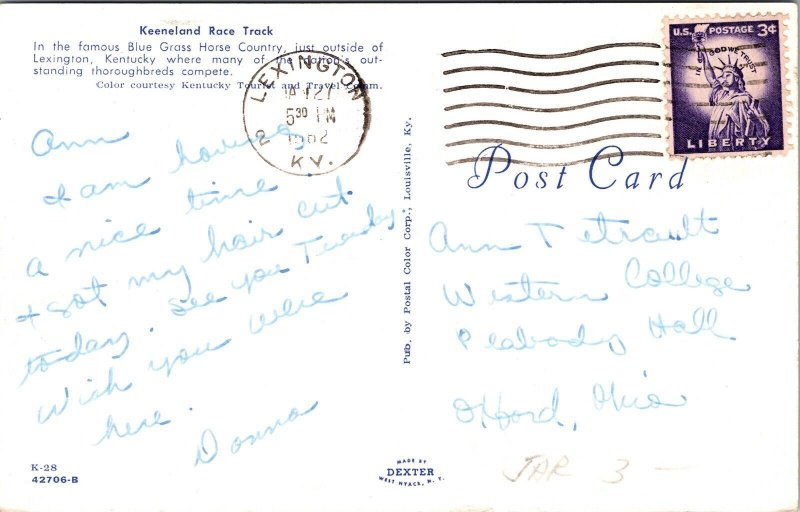 Keeneland Race Track
In the famous Blue Grass Horse Country, just outside of
Lexington, Kentucky where many of the Nation's out-
standing thoroughbreds compete.
Color courtesy Kentucky Tourist and Travel Comm.
LEXINGTON
27
5 30 PM
1962
2
KY.
U.S. POSTAGE 3¢
IN GOD WE TRUST
LIBERTY
Post Card
Ann
I am having
a nice time
I got my hair cut
today. See you Tuesday
Wish you were
here.
Donna
Pub. by Postal Color Corp., Louisville, Ky.
Ann Tetrault
Western College
Peabody Hall
Oxford, Ohio
K-28
42706-B
MADE BY
DEXTER
WEST NYACK, N. Y.
3 —